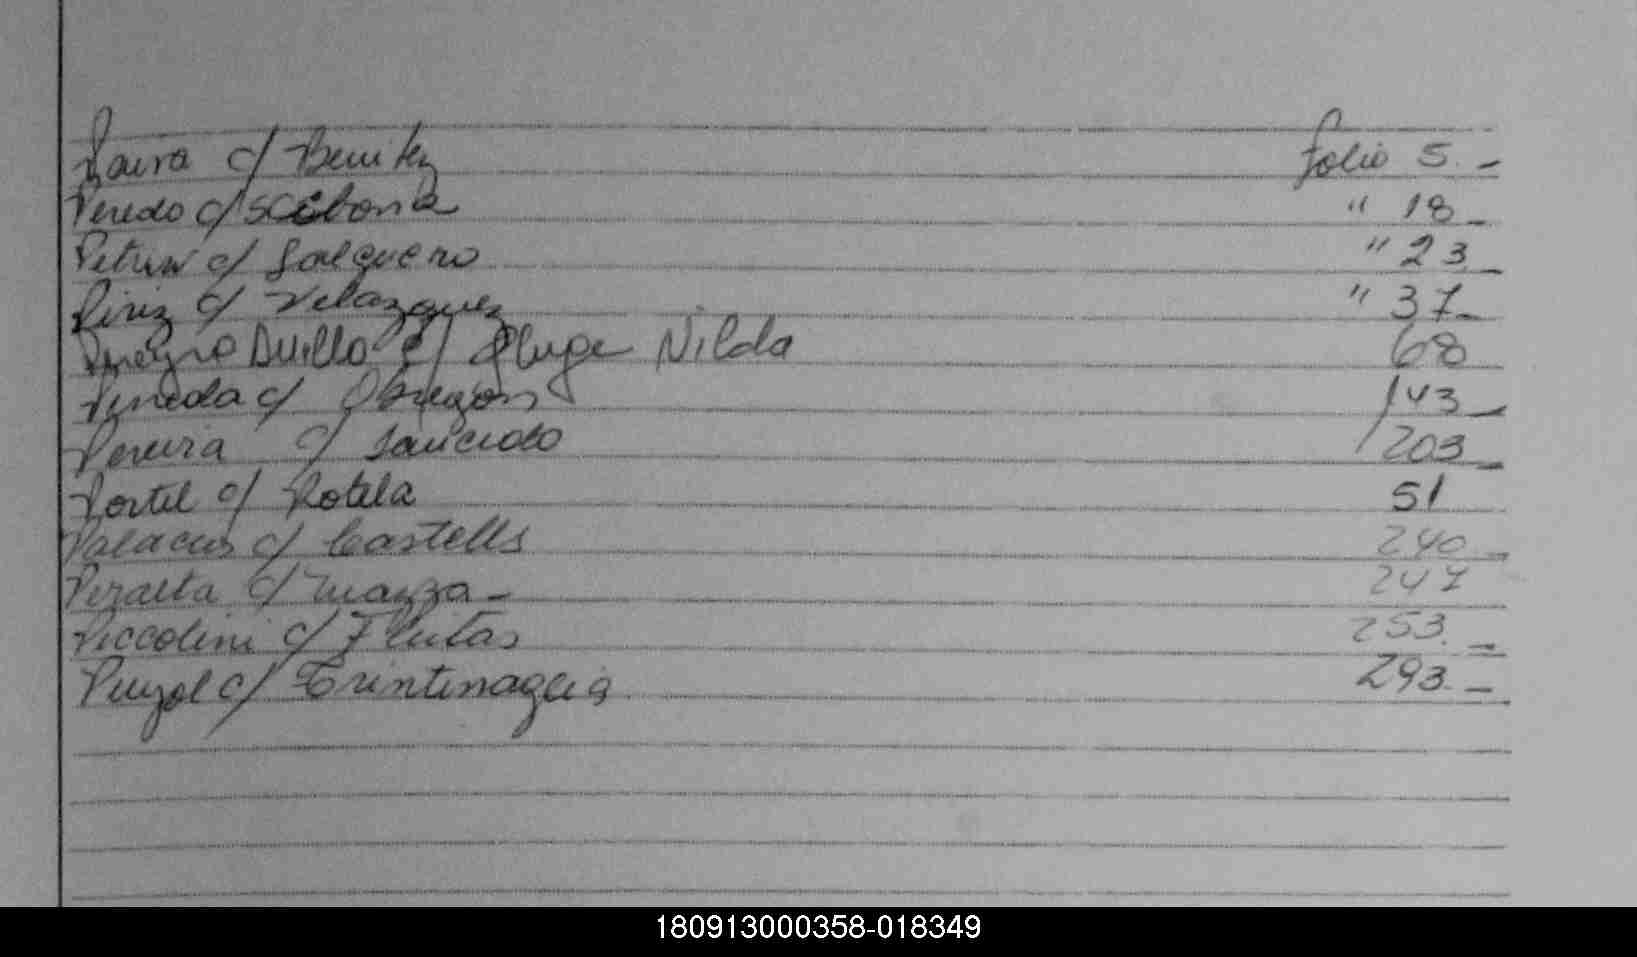 c/ Benitez folio 5. -
Peredo c/ " 18 -
c/ Salguero " 23 -
Piriz c/ Velazquez " 37 -
Duillo c/ Pluge Nilda 68
Pineda c/ Obregon 143 -
Pereira c/ Saucedo 203 -
Portel c/ Rotela 51
Palacios c/ Castells 240 -
Peralta c/ Mazza - 247
Piccolini c/ Flutas 253. -
Puyol c/ Trintinaglia 293. -
180913000358-018349